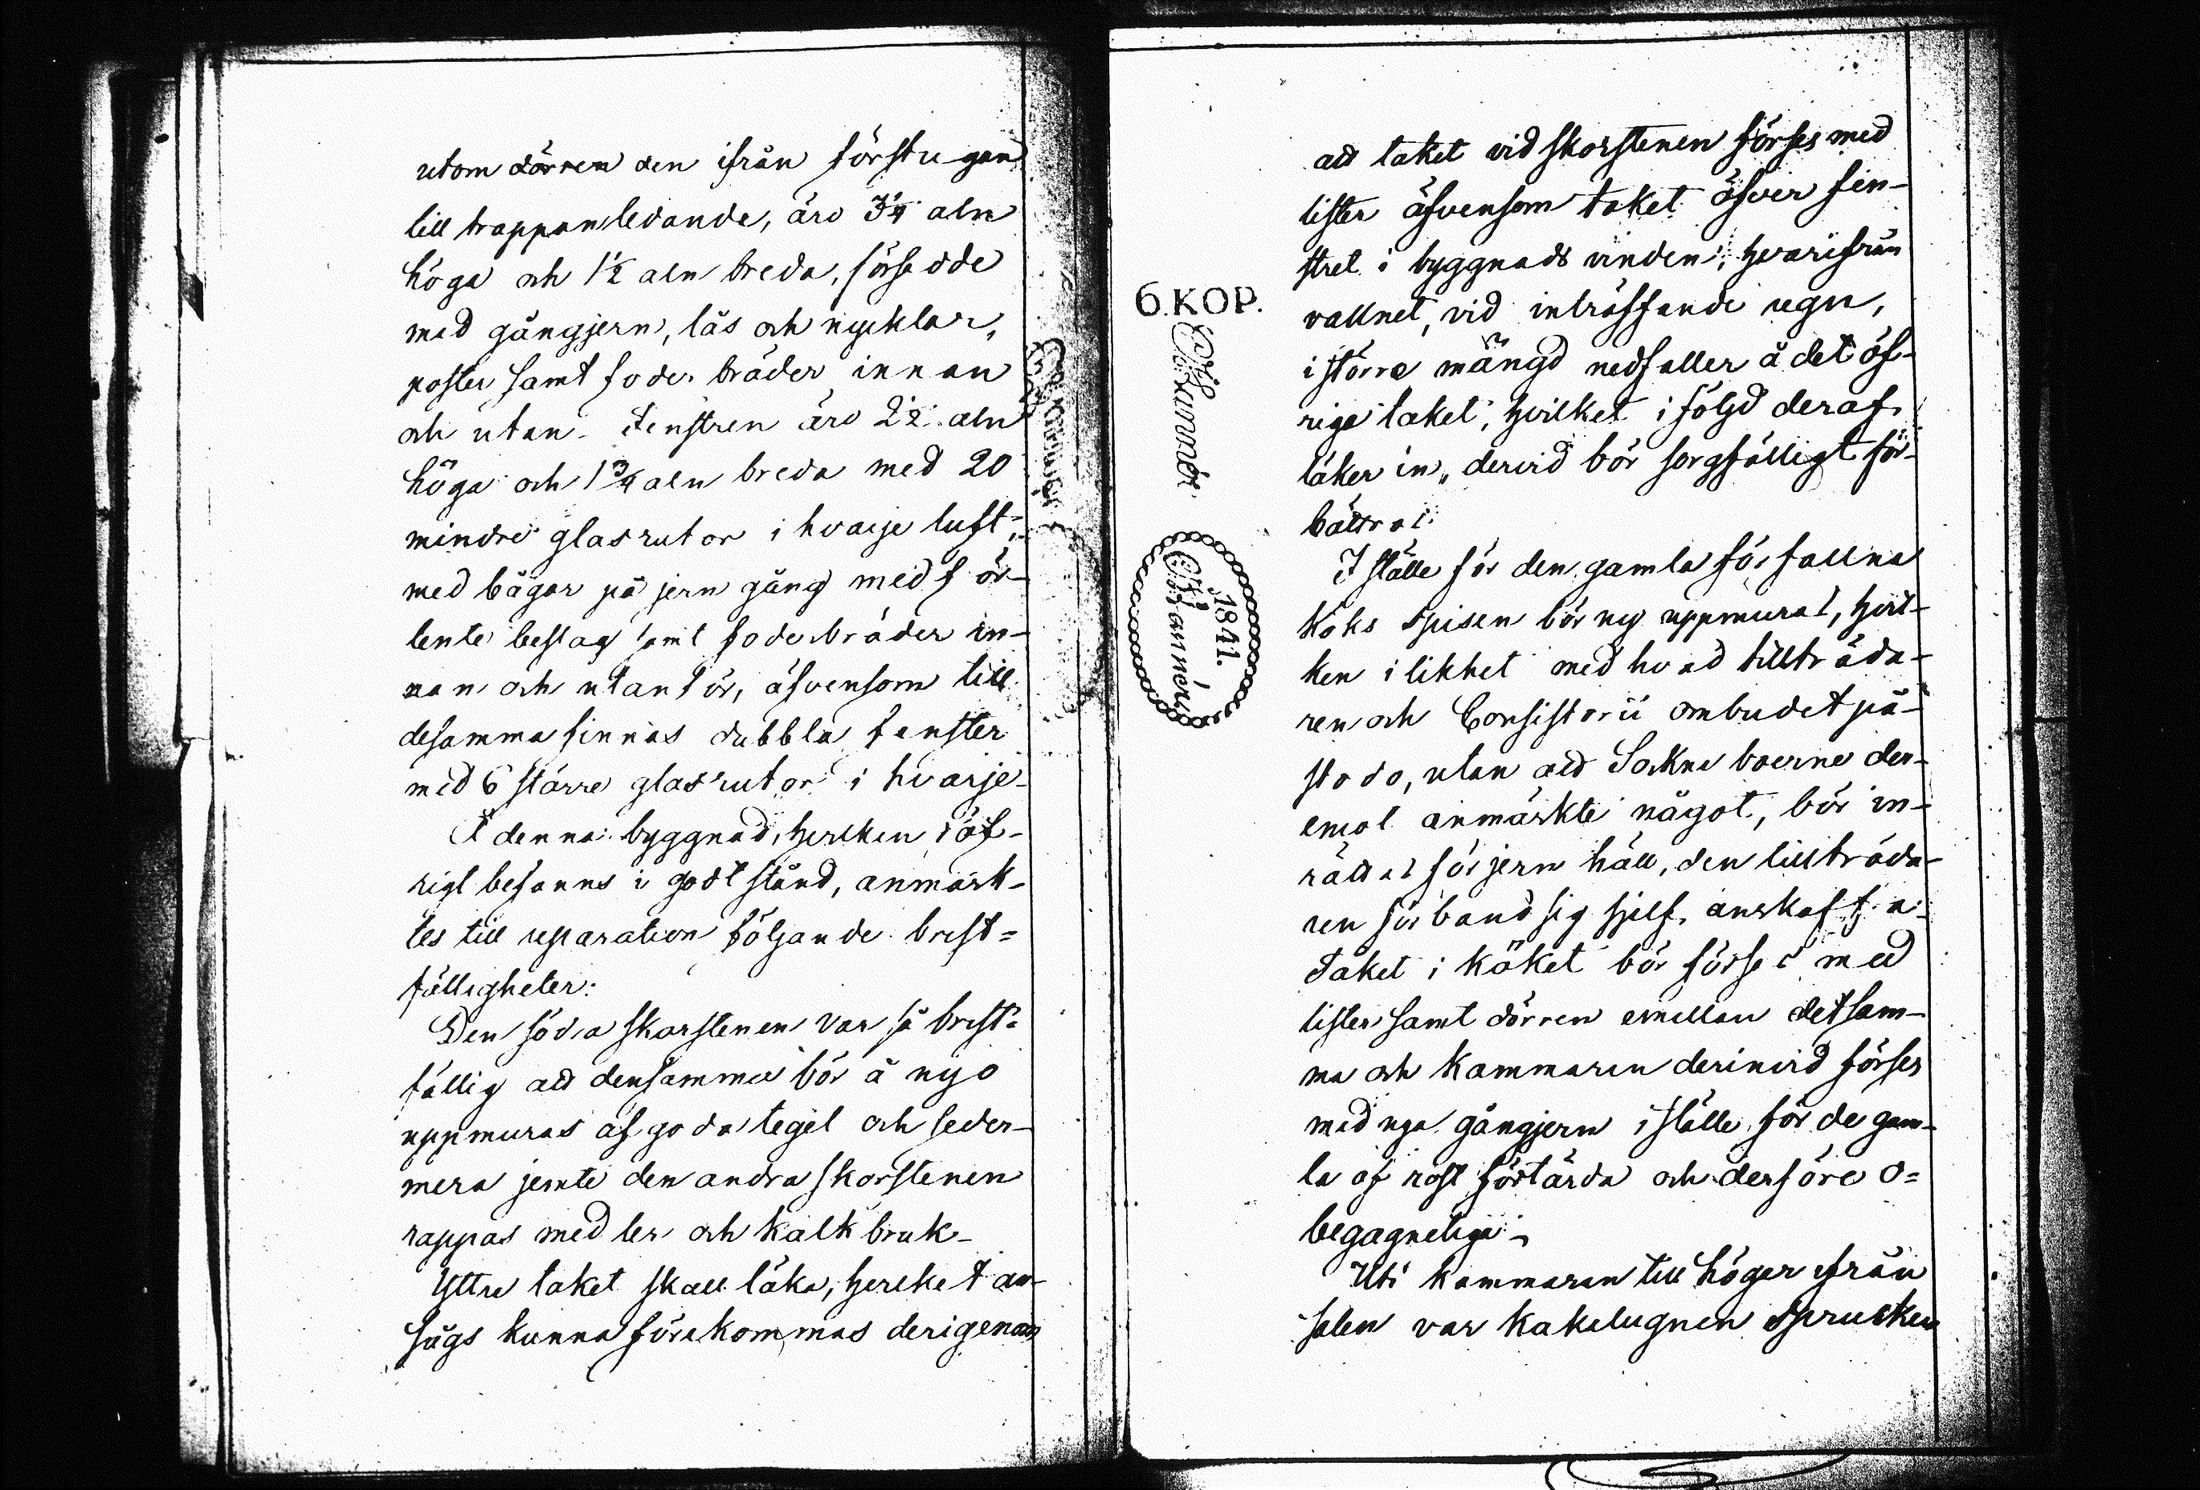 utom dörren den ifrån förstugan
till trappan ledande, äro 3¼ aln
höga och 1½ aln breda, försedde
med gångjern, lås och nycklar,
poster samt foder bräder innan
och utan. Fenstren äro 2½ aln
höga och 1¾ aln breda med 20
mindre glasrutor i hvarje luft,
med bågar på jern gång med för-
tente beslag samt foderbräder in-
nan och utanför, äfvensom till
desamma finnas dubbla fenster
med 6 större glasrutor i hvarje.
Å denna byggnad, hvilken i öf-
rigt befanns i godt stånd, anmärk-
tes till reparation följande brist-
fälligheter:
Den södra skorstenen var så brist-
fällig att densamma bör å nyo
uppmuras af goda tegel och seder-
mera jemte den andra skorstenen
rappas med ler och kalkbruk.
Yttre taket skall läka, hvilket an-
sågs kunna förekommas derigenom
att taket vid skorstenen förses med
lister äfvensom taket öfver fen-
stret i byggnads vinden, hvarifrån
vattnet, vid inträffande regn,
i större mängd nedfaller å det öf-
riga taket, hvilket i följd deraf
läker in, dervid bör sorgfälligt för-
bättras.
I ställe för den gamla förfallna
Köks Spisen bör ny uppmuras, hvil-
ken i likhet med hvad tillträda-
ren och Consistorii ombudet på-
stodo, utan att Sockne boerne der-
emot anmärkte något, bör in-
rättas för jern häll, den tillträda-
ren förband sig sjelf anskaffa.
Taket i köket bör förses med
lister samt dörren emellan detsam-
ma och Kammaren derinvid förses
med nya gångjern i ställe för de gam-
la af rost förtärda och derföre o-
begagneliga.
Uti kammaren till höger ifrån
salen var kakelugnen sprucken
6. KOP.
1841.